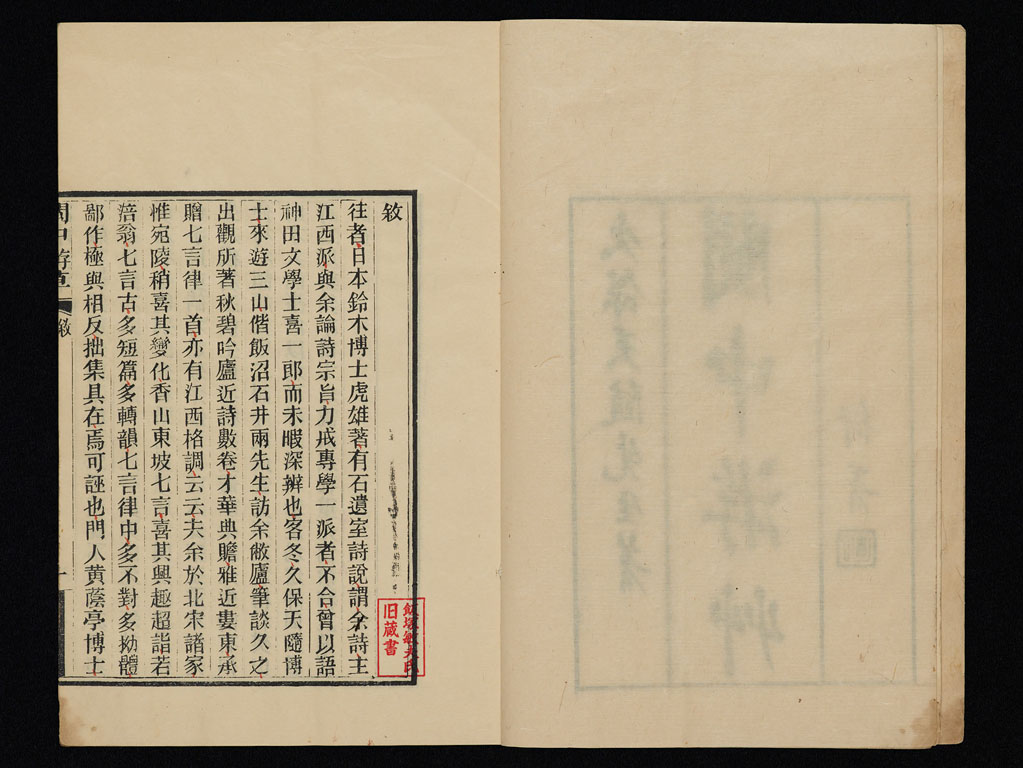 敘
往者日本鈴木博士虎雄著有石遺室詩說謂余詩主
江西派與余論詩宗旨力戒專學一派者不合嘗以語
神田文學士喜一郎而未暇深辨也客冬久保天隨博
士來遊三山偕飯沼石井兩先生訪余敝廬筆談久之
出觀所著秋碧吟廬近詩數卷才華典贍雅近婁東承
贈七言律一首亦有江西格調云云夫余於北宋諸家
惟宛陵稍喜其變化香山東坡七言喜其興趣超詣若
涪翁七言古多短篇多轉韻七言律中多不對多拗體
鄙作極與相反拙集具在焉可誣也門人黃蔭亭博士
閩中游草
敘
一
旧蔵書